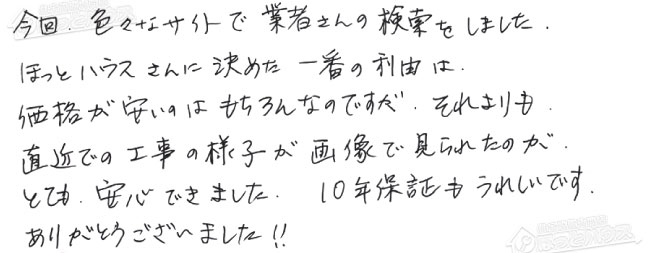 今回、色々なサイトで業者さんの検索をしました。
ほっとハウスさんに決めた一番の利由は、
価格が安いのはもちろんなのですが、それよりも、
直近での工事の様子が画像で見られたのが、
とても、安心できました。 10年保証もうれしいです。
ありがとうございました!!